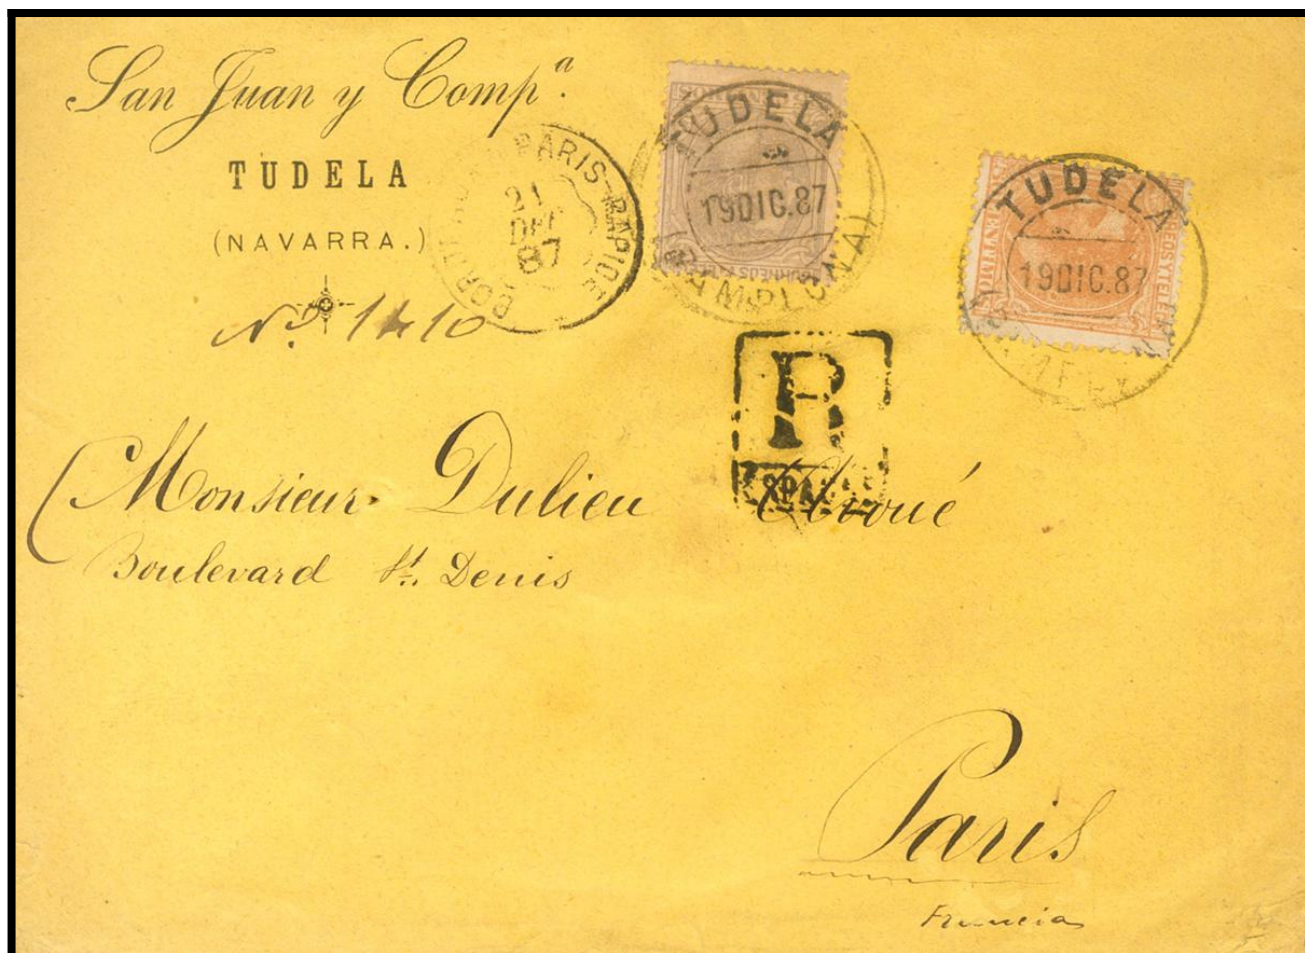 San Juan y Compª.
TUDELA
(NAVARRA.)
Nº. 1410
PARIS-RAPIDE
21
DEC
87
TUDELA
19DIC.87
(PAMPLONA)
CORREOS Y
TUDELA
19DIC.87
CORREOS Y TELEG
R
Monsieur Dulieu Avoué
Boulevard St. Denis
Paris
Francia